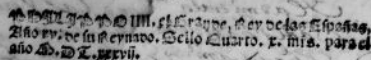 PHILIPPO IIII. el Grande, Rey de las Españas,
Año xv. de su Reynado. Sello Quarto. x. mrs. para el
año M. DC. xxxvii.